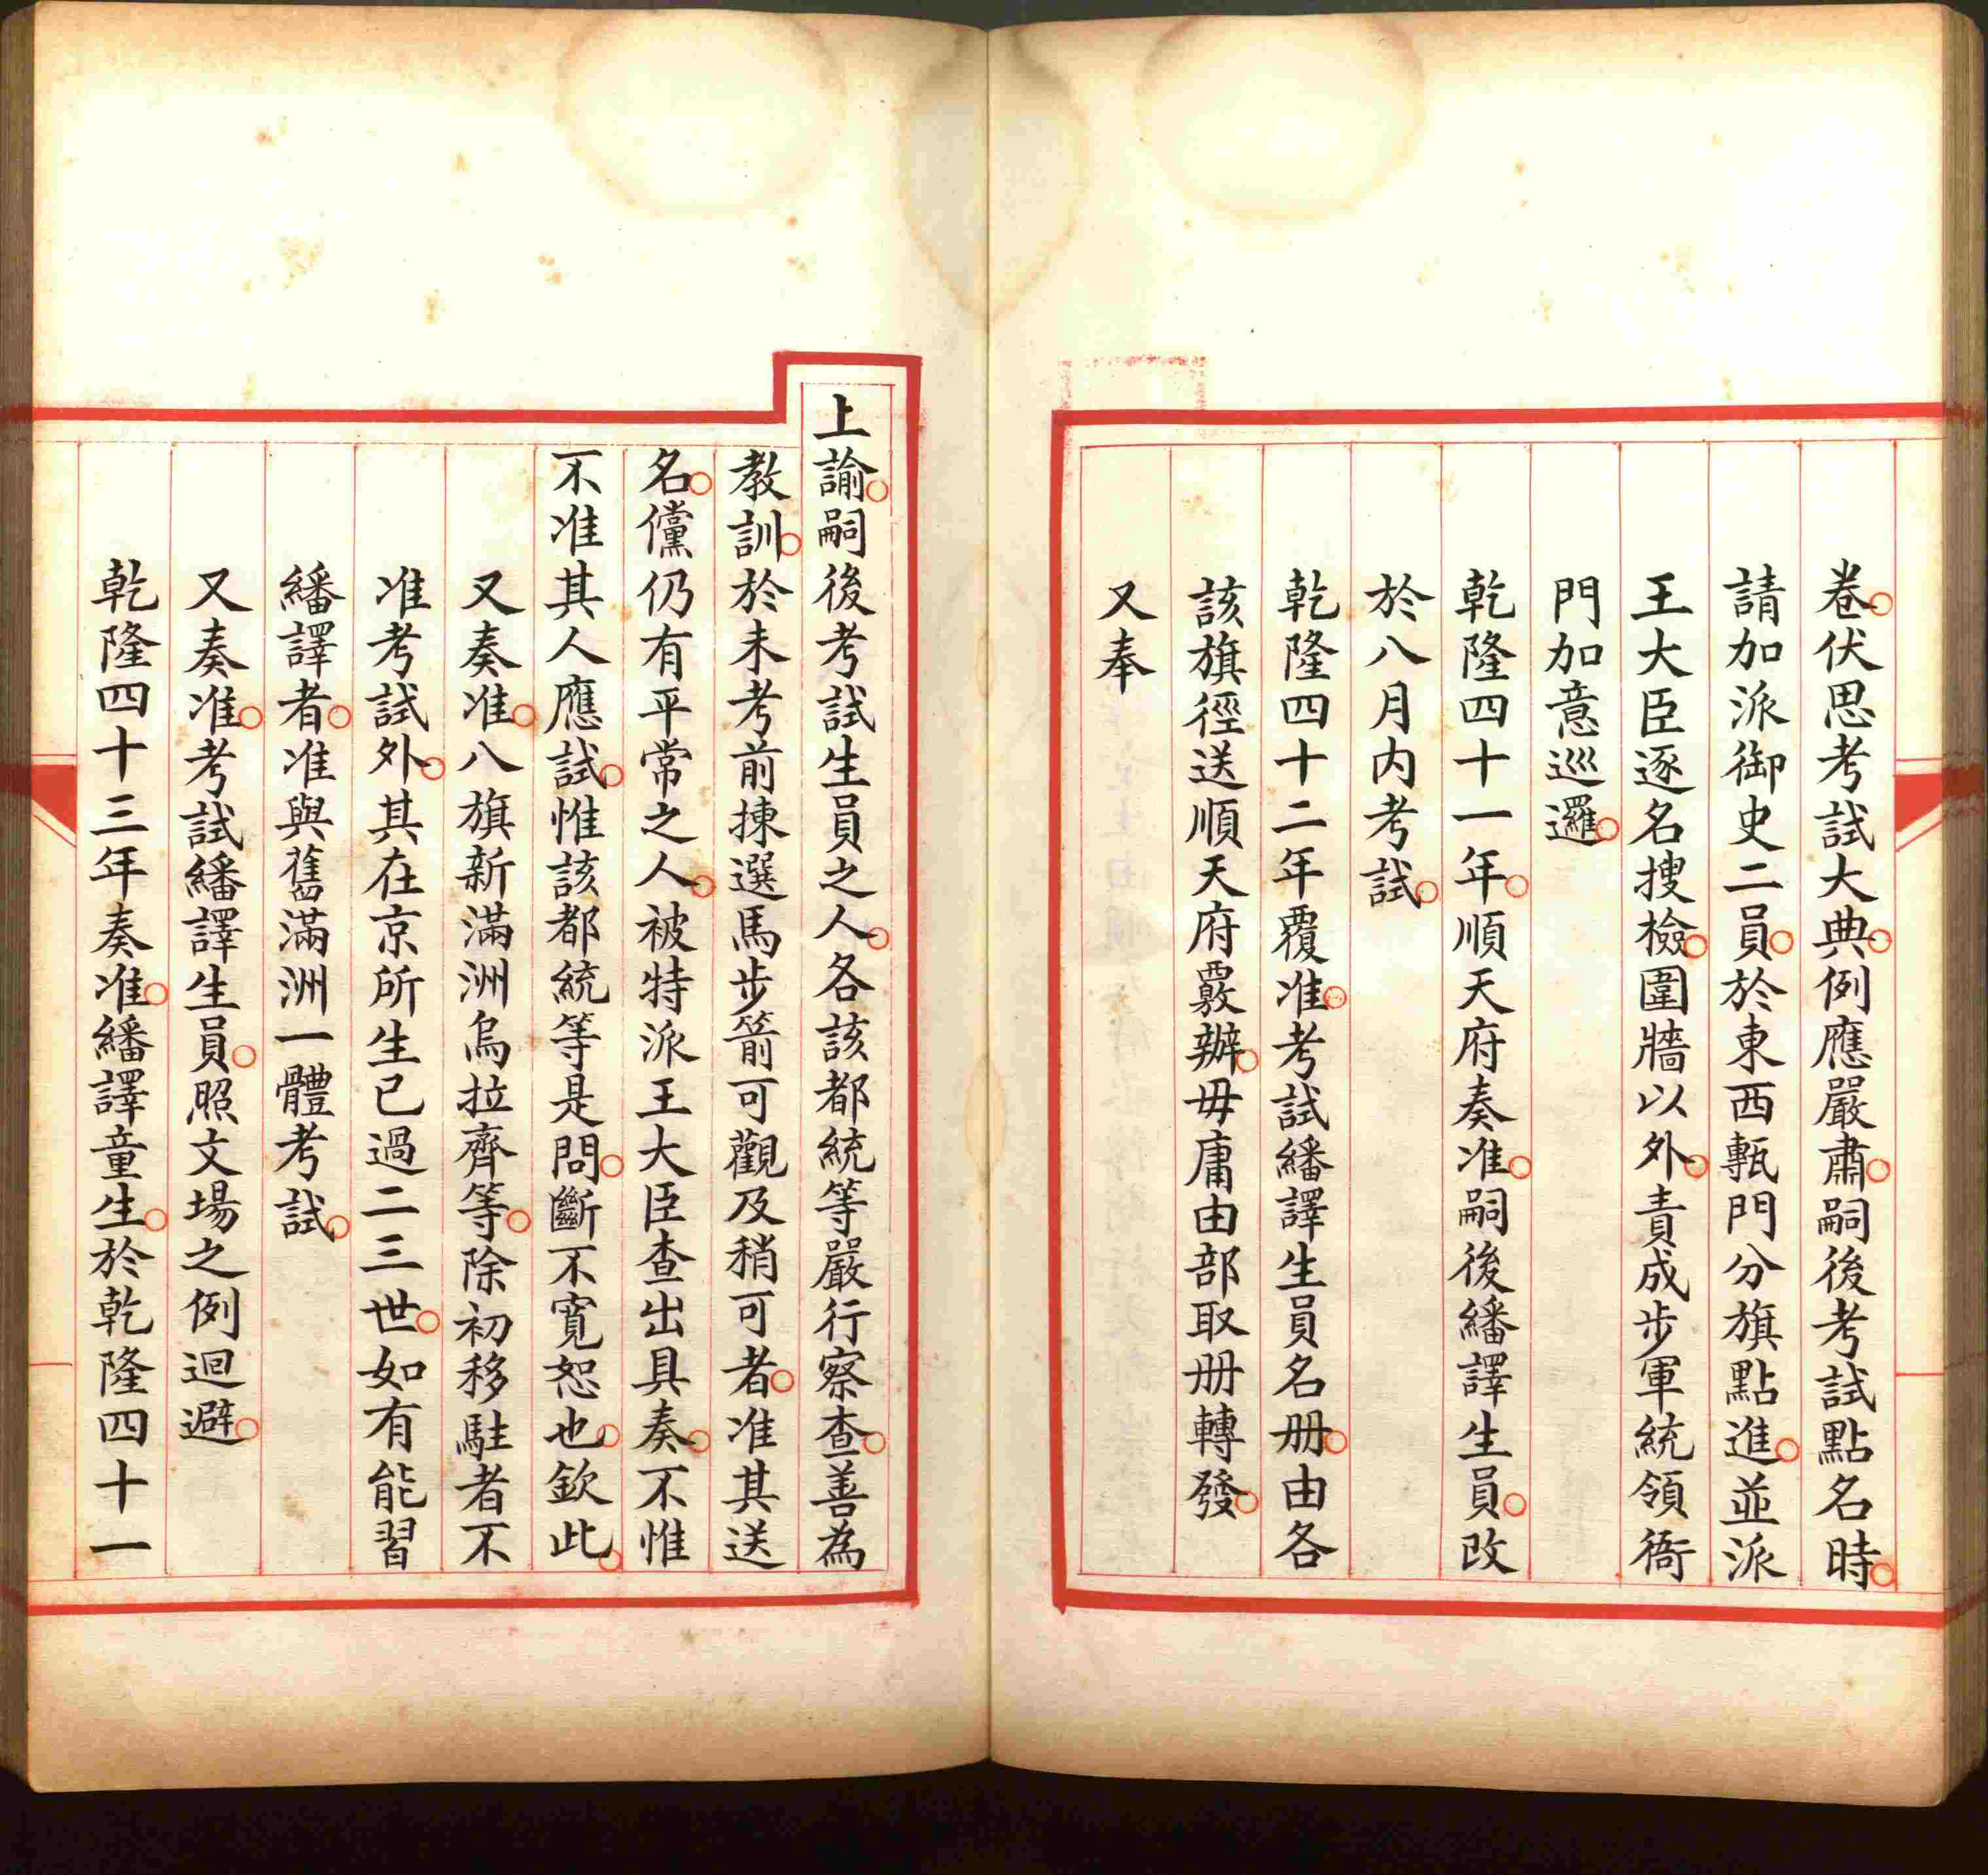 卷伏思考試大典例應嚴肅嗣後考試點名時
請加派御史二員於東西甎門分旗點進並派
王大臣逐名搜檢圍牆以外責成步軍統領衙
門加意巡邏
乾隆四十一年順天府奏准嗣後繙譯生員改
於八月內考試
乾隆四十二年覆准考試繙譯生員名册由各
該旗徑送順天府覈辦毋庸由部取册轉發
又奉
上諭嗣後考試生員之人各該都統等嚴行察查善為
教訓於未考前揀選馬步箭可觀及稍可者准其送
名儻仍有平常之人被特派王大臣查出具奏不惟
不准其人應試惟該都統等是問斷不寬恕也欽此
又奏准八旗新滿洲烏拉齊等除初移駐者不
准考試外其在京所生已過二三世如有能習
繙譯者准與舊滿洲一體考試
又奏准考試繙譯生員照文場之例迴避
乾隆四十三年奏准繙譯童生於乾隆四十一